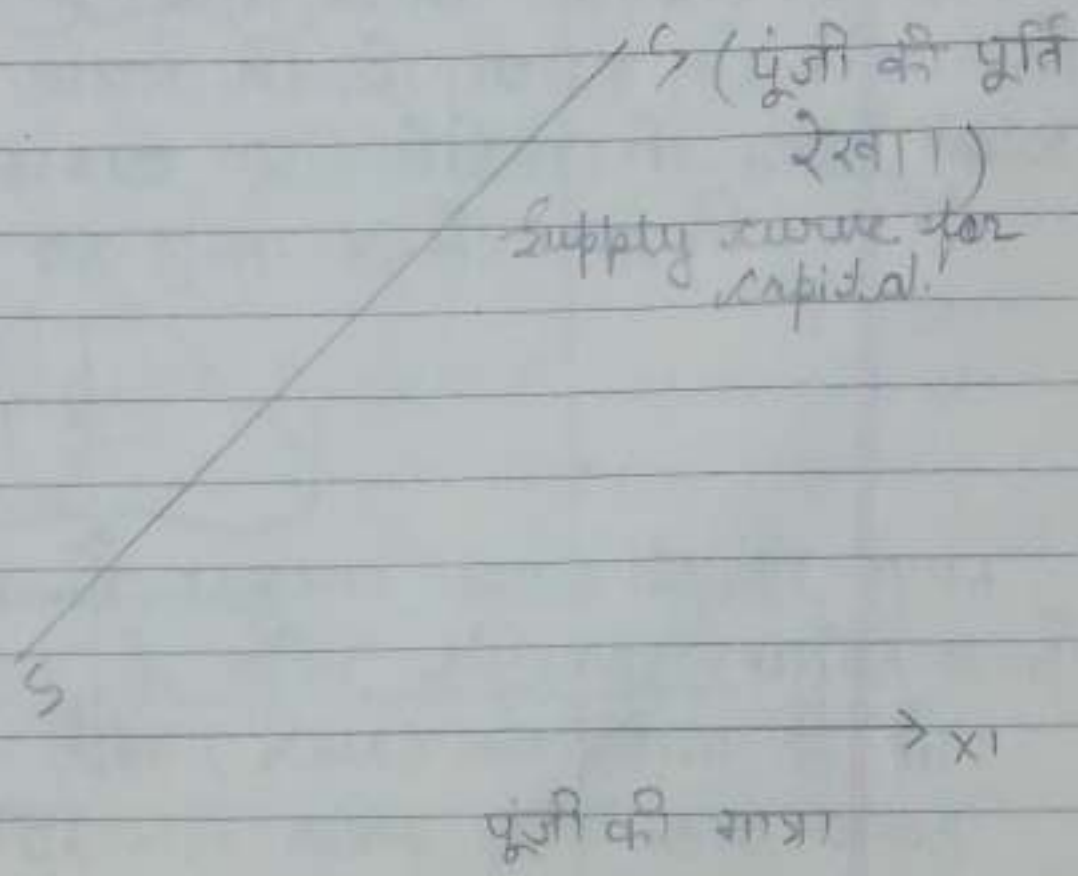 S (पूंजी की पूर्ति
रेखा।)
Supply curve for
capital.
S
X1
पूंजी की मात्रा